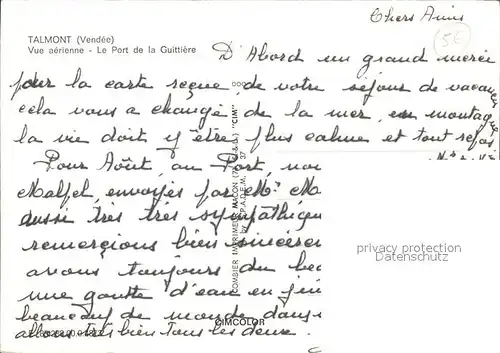 TALMONT (Vendée)
Vue aérienne - Le Port de la Guittière
Chers Amis
5€
D'Abord un grand merci
pour la carte reçue de votre séjour de vacances
cela vous a changé de la mer, en montagne
la vie doit y être plus calme et tout repos
Pour Août, au Port, nou
envoyés par Mr Ma
aussi très très sympathique
remercions bien sincèrem
avons toujours du bea
une goutte d'eau en jui
beaucoup de monde dans
allons très bien tous les deux.
COMBIER IMPRIMEUR MACON "CIM"
CIMCOLOR
privacy protection
Datenschutz